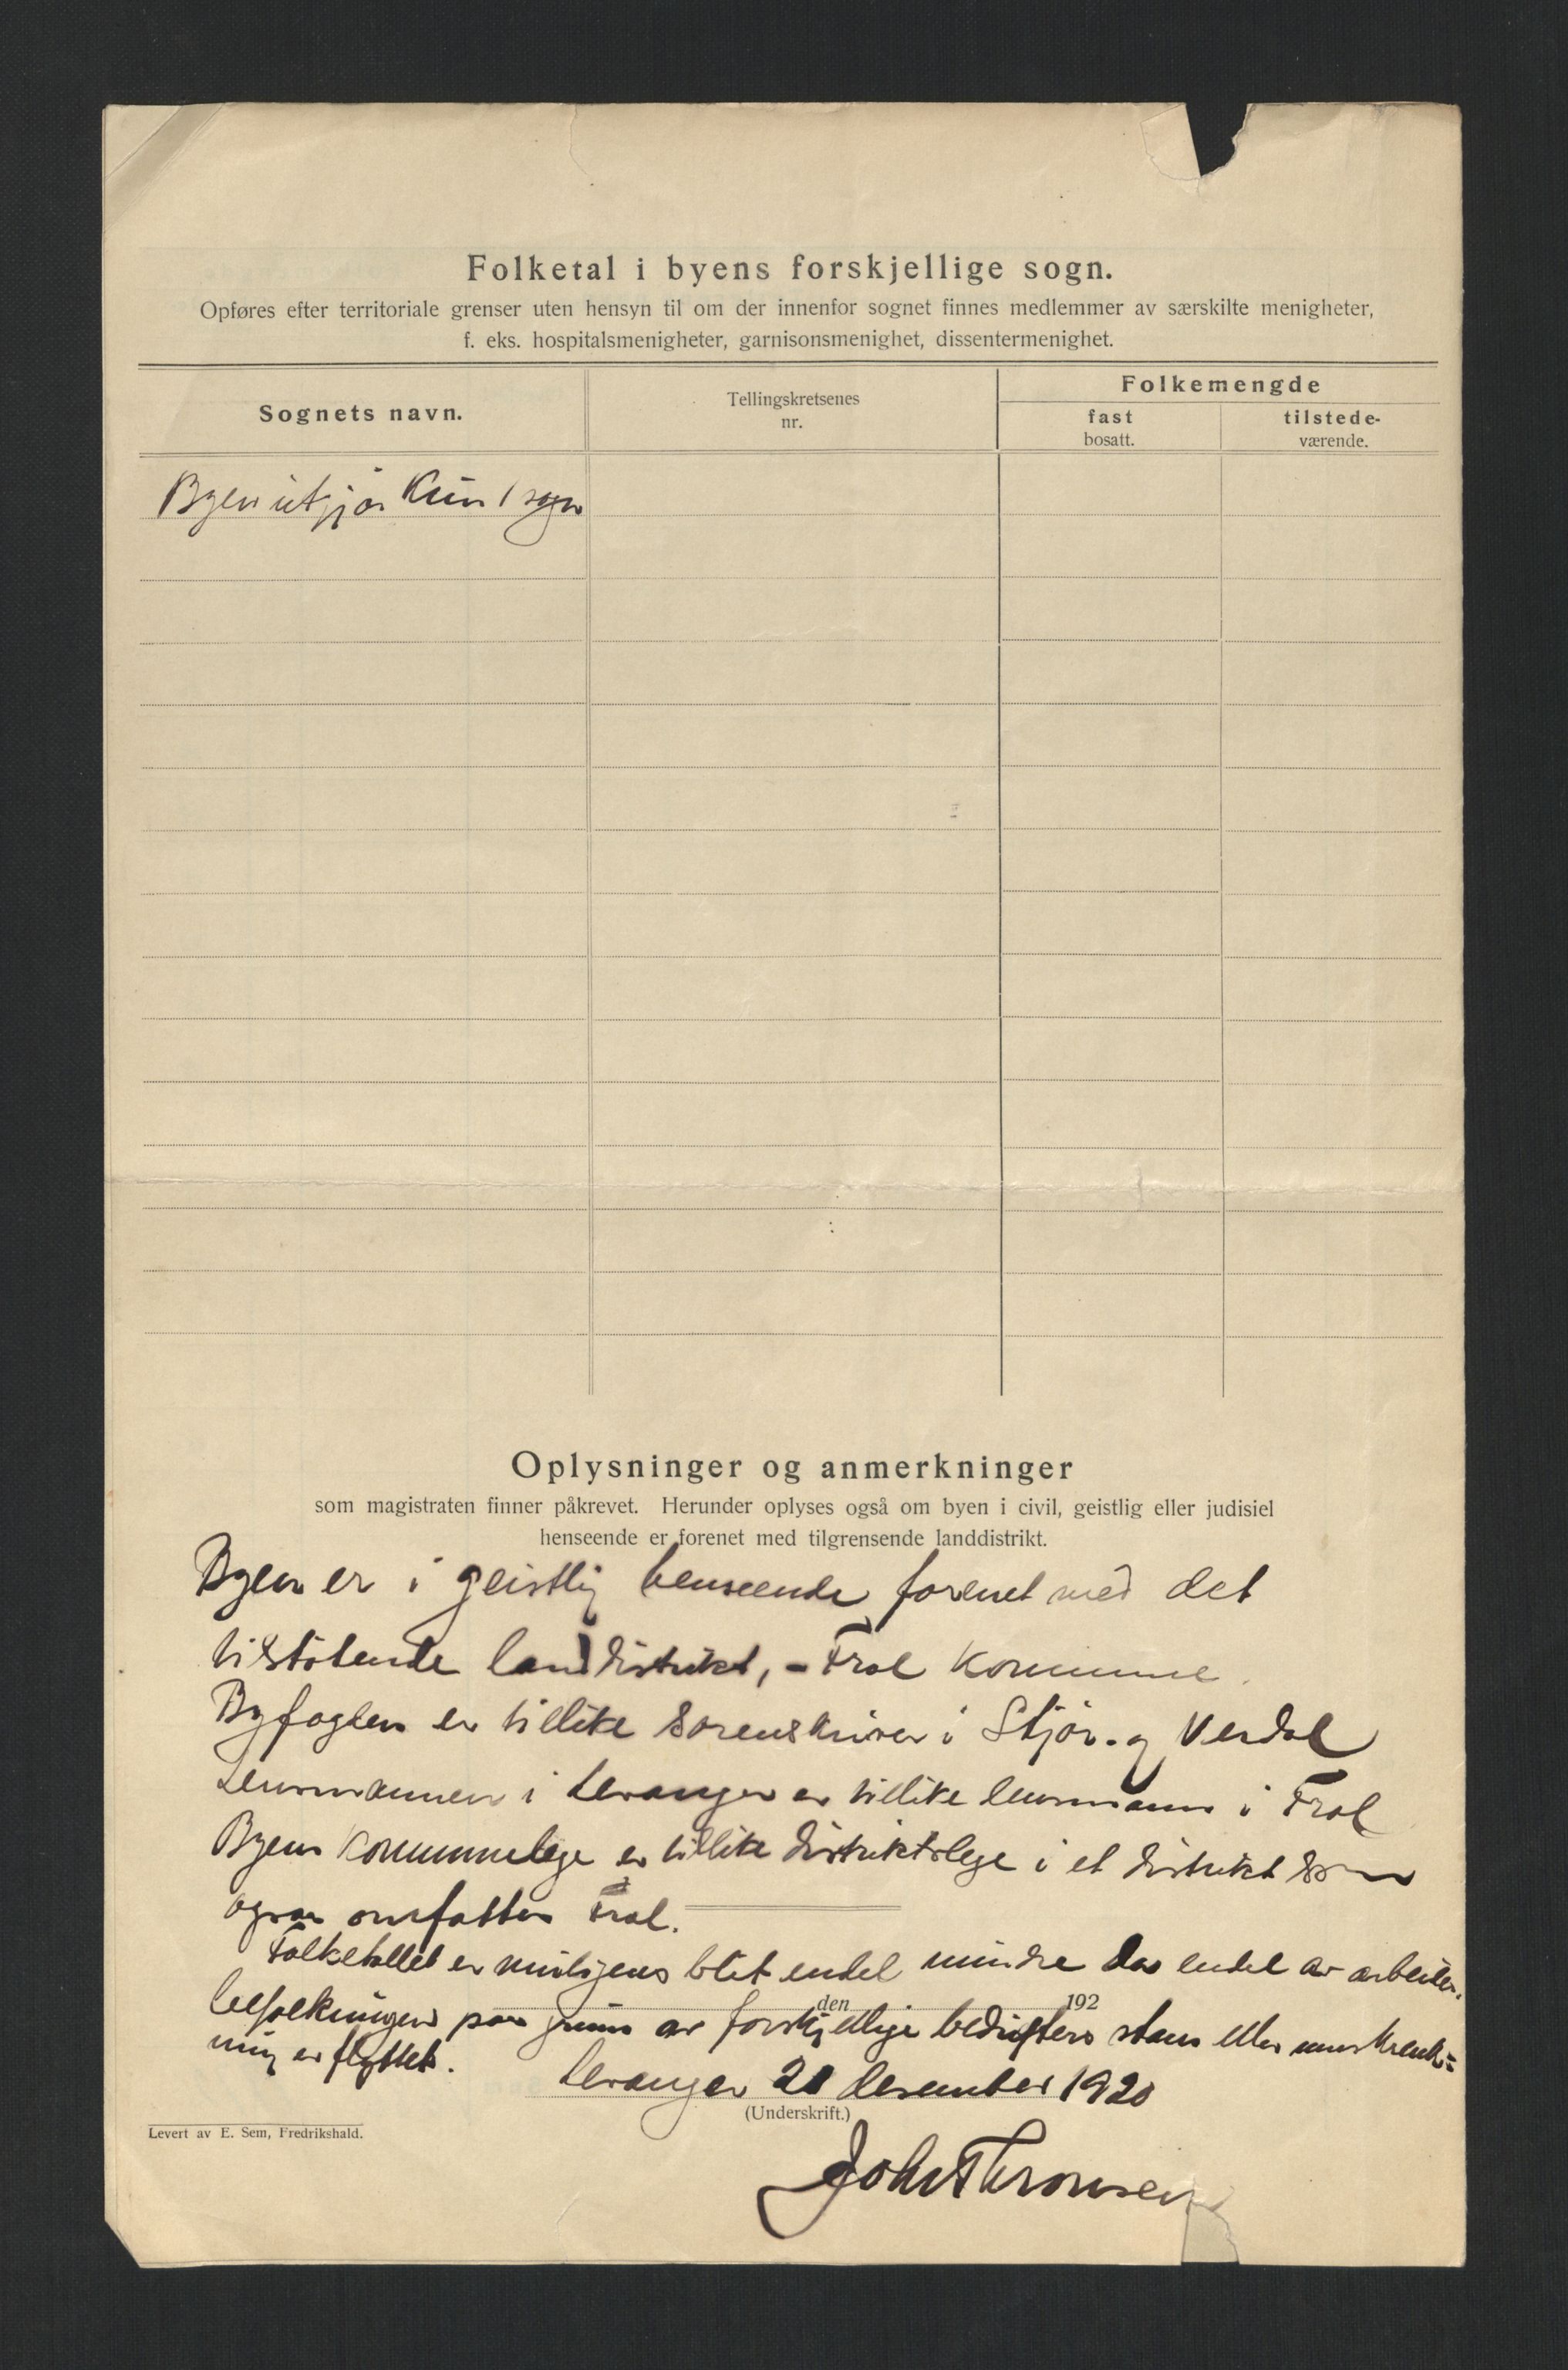 Folketal i byens forskjellige sogn.
Opføres efter territoriale grenser uten hensyn til om der innenfor sognet finnes medlemmer av særskilte menigheter,
f. eks. hospitalsmenigheter, garnisonsmenighet, dissentermenighet.
Sognets navn.
Tellingskretsenes
nr.
Folkemengde
fast
bosatt.
tilstede-
værende.
Byen utgjør kun 1 sogn
Oplysninger og anmerkninger
som magistraten finner påkrevet. Herunder oplyses også om byen i civil, geistlig eller judisiel
henseende er forenet med tilgrensende landdistrikt.
Byen er i geistlig henseende forenet med det
tilstøtende landdistrikt, - Frol kommune.
Byfogden er tillike sorenskriver i Stjør- og Verdal
Lensmannen i Levanger er tillike lensmann i Frol
Byens kommunelæge er tillike distriktslæge i et distrikt som
ogsaa omfatter Frol.
Folketallet er muligens blit endel mindre da endel av arbeider-
befolkningen paa grunn av forskjellige bedrifters stans eller innskrenk=
ning er flyttet.
den
192
Levanger 20 desember 1920
(Underskrift.)
Levert av E. Sem, Fredrikshald.
John Thronsen